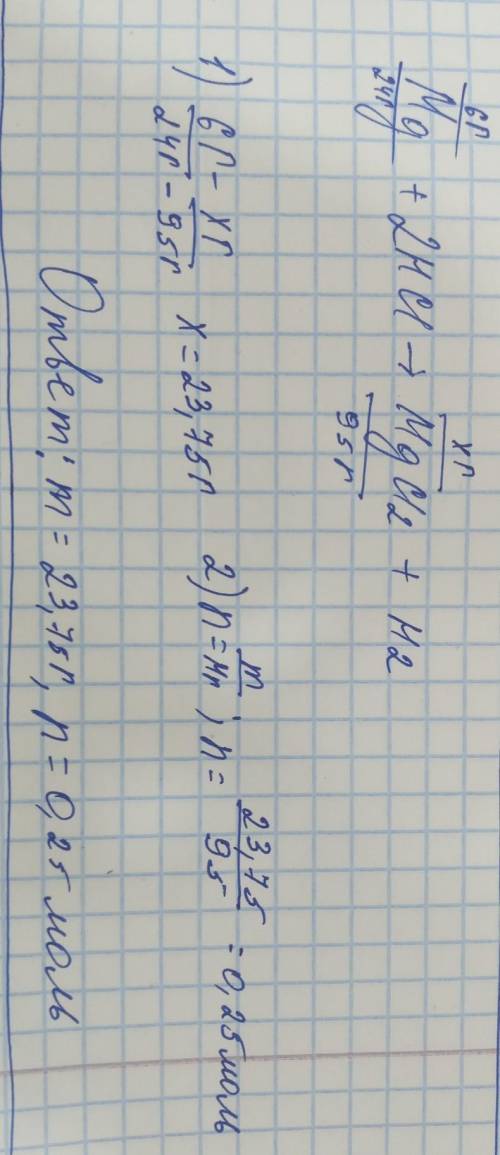 6г xг
Mg + 2HCl → MgCl2 + H2
24г 95г
1) 6г - xг
24г - 95г
x = 23,75г
2) n = m/Mr ; n = 23,75/95 = 0,25 моль
Ответ: m = 23,75г, n = 0,25 моль